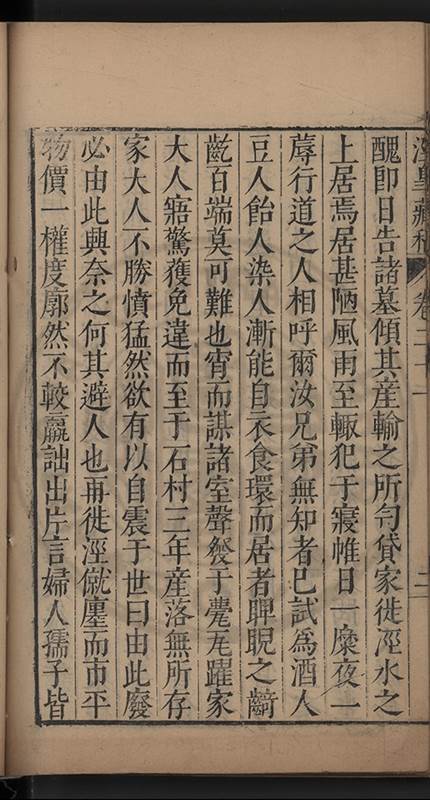 涇皋藏稿 卷二十一 二
醜即日告諸墓傾其產輸之所匄貸家徙涇水之
上居焉居甚陋風雨至輒犯于寢帷日一糜夜一
蓐行道之人相呼爾汝兄弟無知者已試為酒人
豆人飴人染人漸能自衣食環而居者睥睨之齮
齕百端莫可難也宵而謀諸室聲發于甍瓦躍家
大人寤驚獲免違而至于石村三年產落無所存
家大人不勝憤猛然欲有以自震于世曰由此廢
必由此興奈之何其避人也再徙涇僦廛而市平
物價一權度廓然不較贏詘出片言婦人孺子皆